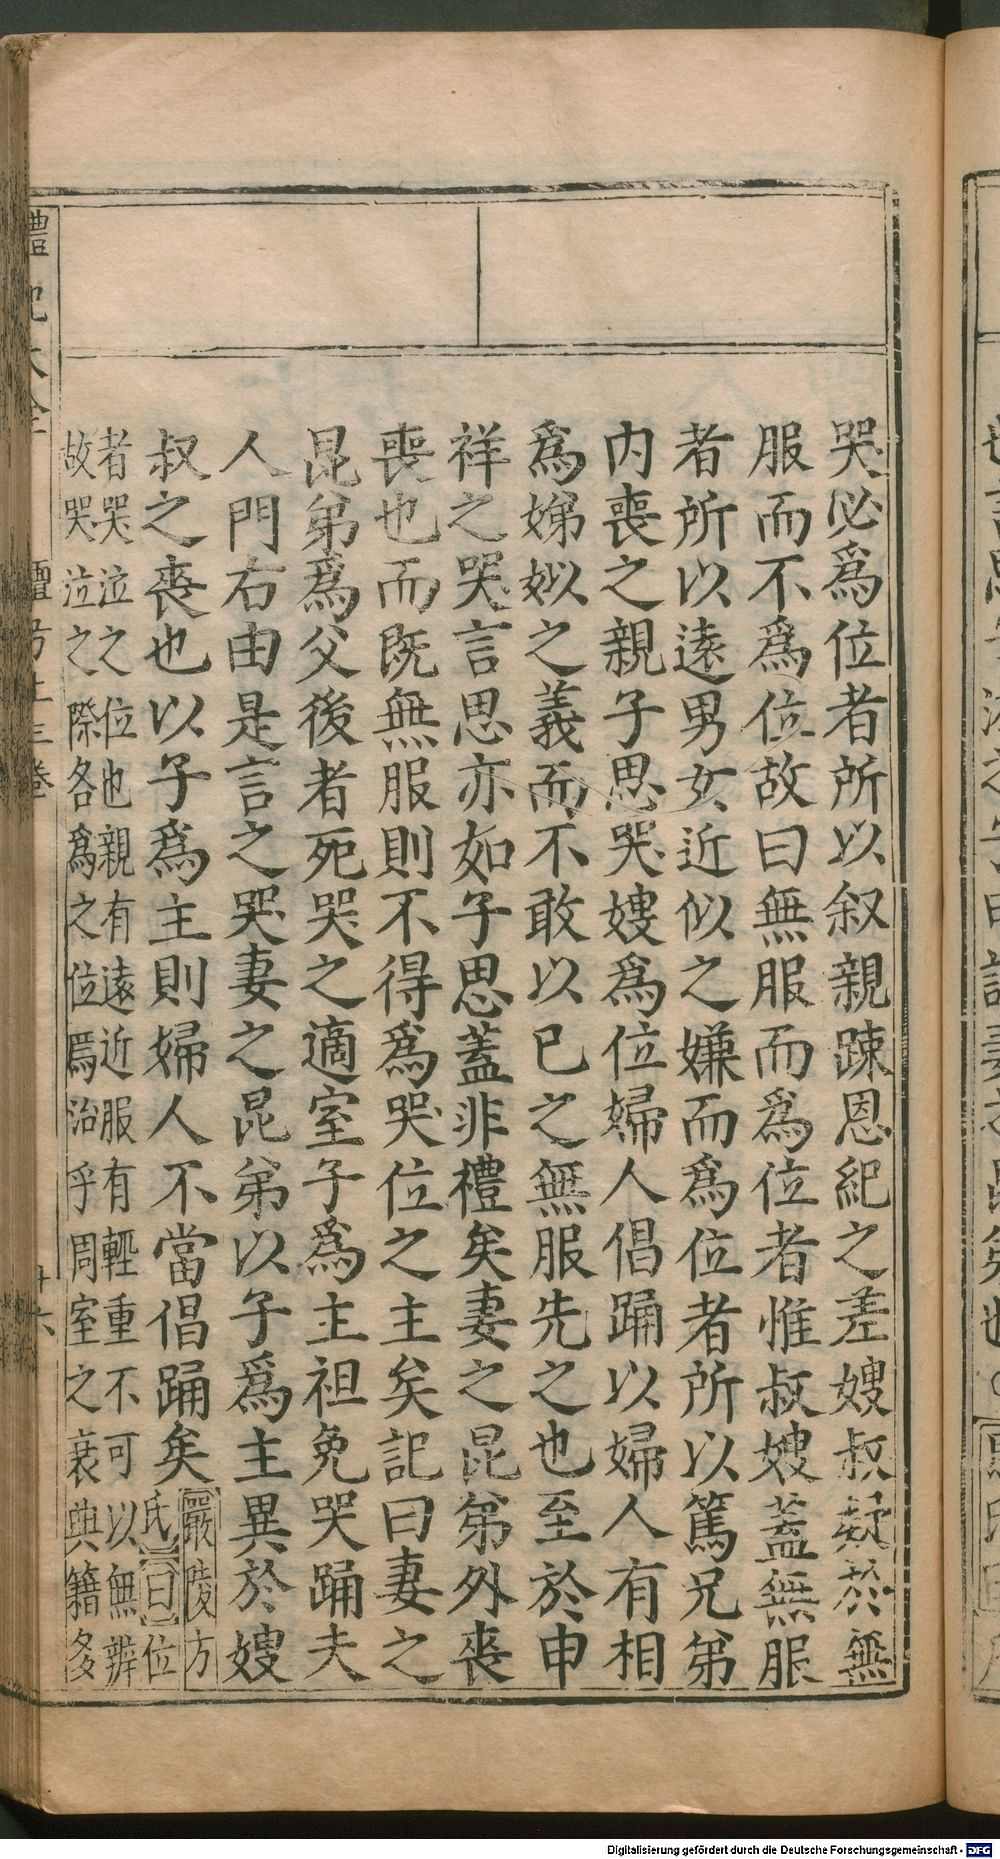 哭必爲位者所以叙親踈恩紀之差嫂叔疑於無
服而不爲位故曰無服而爲位者惟叔嫂蓋無服
者所以遠男女近似之嫌而爲位者所以篤兄弟
内喪之親子思哭嫂爲位婦人倡踊以婦人有相
爲娣姒之義而不敢以已之無服先之也至於申
祥之哭言思亦如子思蓋非禮矣妻之昆弟外喪
喪也而既無服則不得爲哭位之主矣記曰妻之
昆弟爲父後者死哭之適室子爲主袒免哭踊夫
人門右由是言之哭妻之昆弟以子爲主異於嫂
叔之喪也以子爲主則婦人不當倡踊矣
嚴陵方
氏曰位
者哭泣之位也親有遠近服有輕重不可以無辨
故哭泣之際各爲之位焉治乎周室之衰典籍多
禮記大全
檀弓上三卷
廿六
Digitalisierung gefördert durch die Deutsche Forschungsgemeinschaft - DFG